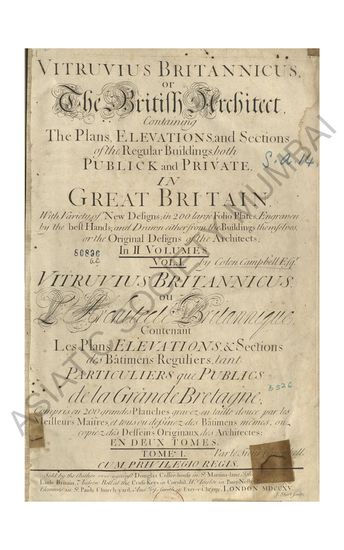 VITRUVIUS BRITANNICUS,
or
The British Architect,
Containing
The Plans, ELEVATIONS, and Sections
of the Regular Buildings, both
PUBLICK and PRIVATE,
IN
GREAT BRITAIN,
With Variety of New Designs; in 200 large Folio Plates, Engraven
by the best Hands; and Drawn either from the Buildings themselves,
or the Original Designs of the Architects;
In II VOLUMES
VOL. I. by Colen Campbell Esqr.
VITRUVIUS BRITANNICUS,
ou
L'Architect Britannique,
Contenant
Les Plans, ELEVATIONS, & Sections
des Bâtimens Reguliers, tant
PARTICULIERS que PUBLICS
de la Grande Bretagne,
Compris en 200 grandes Planches gravez en taille douce par les
Meilleurs Maitres, et tous ou dessinez des Bâtimens mêmes, ou
copiez des Desseins Originaux des Architectes:
EN DEUX TOMES.
TOME I. Par le Sieur
CUM PRIVILEGIO REGIS.
Sold by the Author
Little Britain, at the Cross-Keys in Cornhill,
St. Pauls Church-yard, LONDON MDCCXV.
S.a.14
80836
3526
ASIATIC SOCIETY MUMBAI